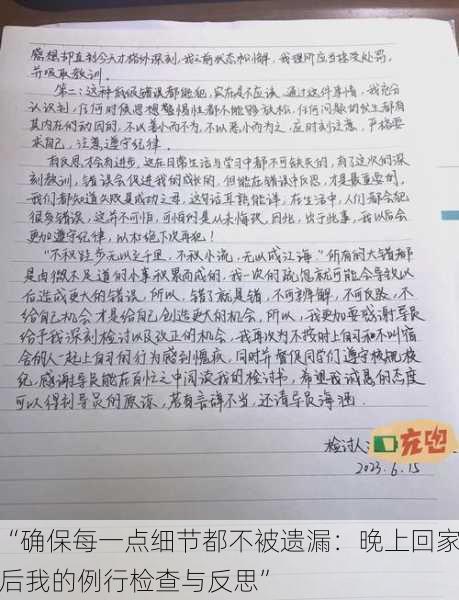 感想却直到今天才格外深刻,我之前状态松懈,我理所应当接受处罚,
并吸取教训。
第二:这种低级错误都能犯,实在是不应该,通过这件事情,我充分
认识到,任何时候思想警惕性都不能够放松,任何问题的发生都有
其内在的动因的,不以善小而不为,不以恶小而为之,应时刻注意,严格要
求自己,注意遵守纪律。
有反思,才会有进步,这在日常生活与学习中都不可缺失的,有了这次的深
刻教训,错误会促进我的成长的,但能在错误中反思,才是最重要的。
我们都知道失败是成功之母,这句话耳熟能详,在生活中,人们都会犯
很多错误,这并不可怕,可怕的是从未悔改,因此,出于此事,我以后会
更加遵守纪律,以杜绝下次再犯!
“不积跬步无以至千里,不积小流,无以成江海。”所有的大错都
是由微不足道的小事积累而成的,我一次的疏忽就可能会导致以
后造成更大的错误,所以,错了就是错,不可辨解,不可反驳,不
给自己机会才是给自己创造更大的机会,所以,我更加要感谢导员
给予我深刻检讨以及改正的机会,我再次为不按时上自习和不叫宿
舍的人一起上自习的行为感到愧疚,同时并督促同学们遵守校规校
纪,感谢导员能在百忙之中阅读我的检讨书,希望我诚恳的态度
可以得到导员的原谅,若有言辞不当,还请导员海涵。
检讨人:
充电
2023.6.15
“确保每一点细节都不被遗漏:晚上回家
后我的例行检查与反思”